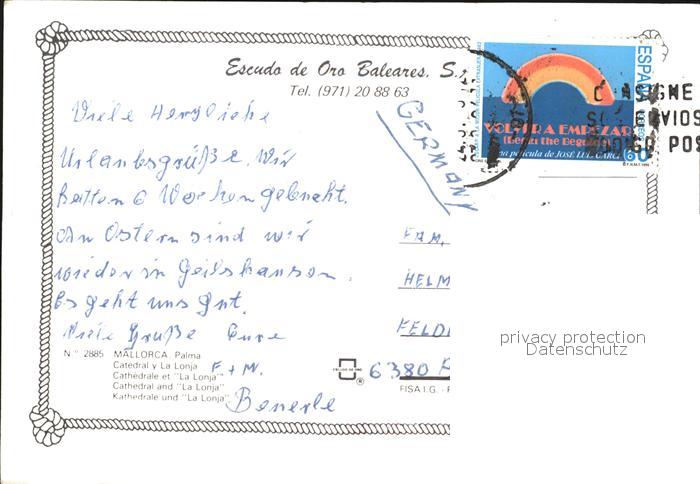 Escudo de Oro Baleares. S.
Tel. (971) 20 88 63
Viele Herzliche
Urlaubsgrüße. Wir
hatten 6 Wochen gebucht.
An Ostern sind wir
wieder in Geilshausen.
Es geht uns gut.
Viele Grüße Eure
F + M.
Benerle
N.º 2885 MALLORCA. Palma
Catedral y La Lonja
Cathédrale et "La Lonja"
Cathedral and "La Lonja"
Kathedrale und "La Lonja"
GERMANY
ESPAÑA
CORREOS
VOLVER A EMPEZAR
(Begin the Beguine)
una película de JOSE LUIS GARCI
60
CONSIGNE
SU
ENVIOS
CODIGO POS
FAM.
HELM
FELD
6380
ESCUDO DE ORO
®
FISA I.G. -
privacy protection
Datenschutz